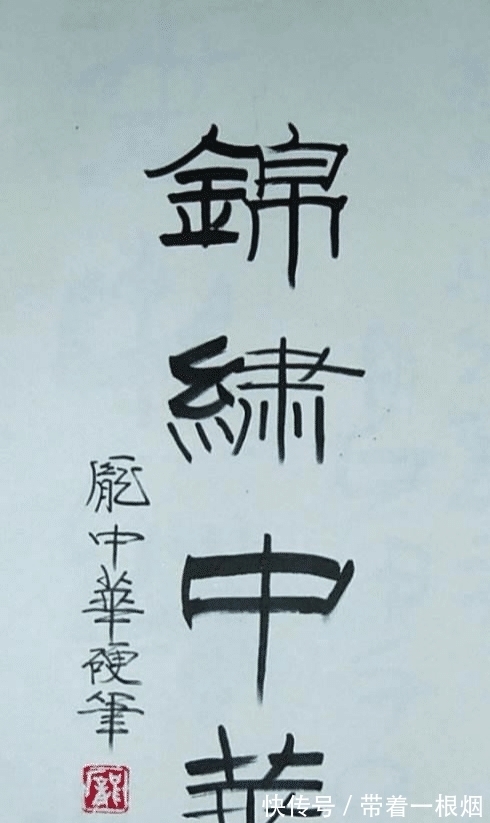 錦繡中華
龐中華硬筆
龐
快传号/带着一根烟